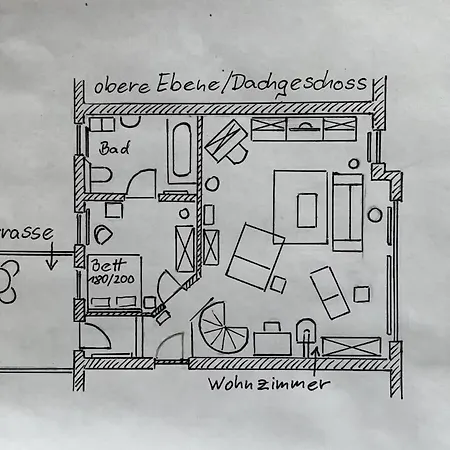 obere Ebene/Dachgeschoss
Bad
rrasse
Bett
180/200
Wohnzimmer